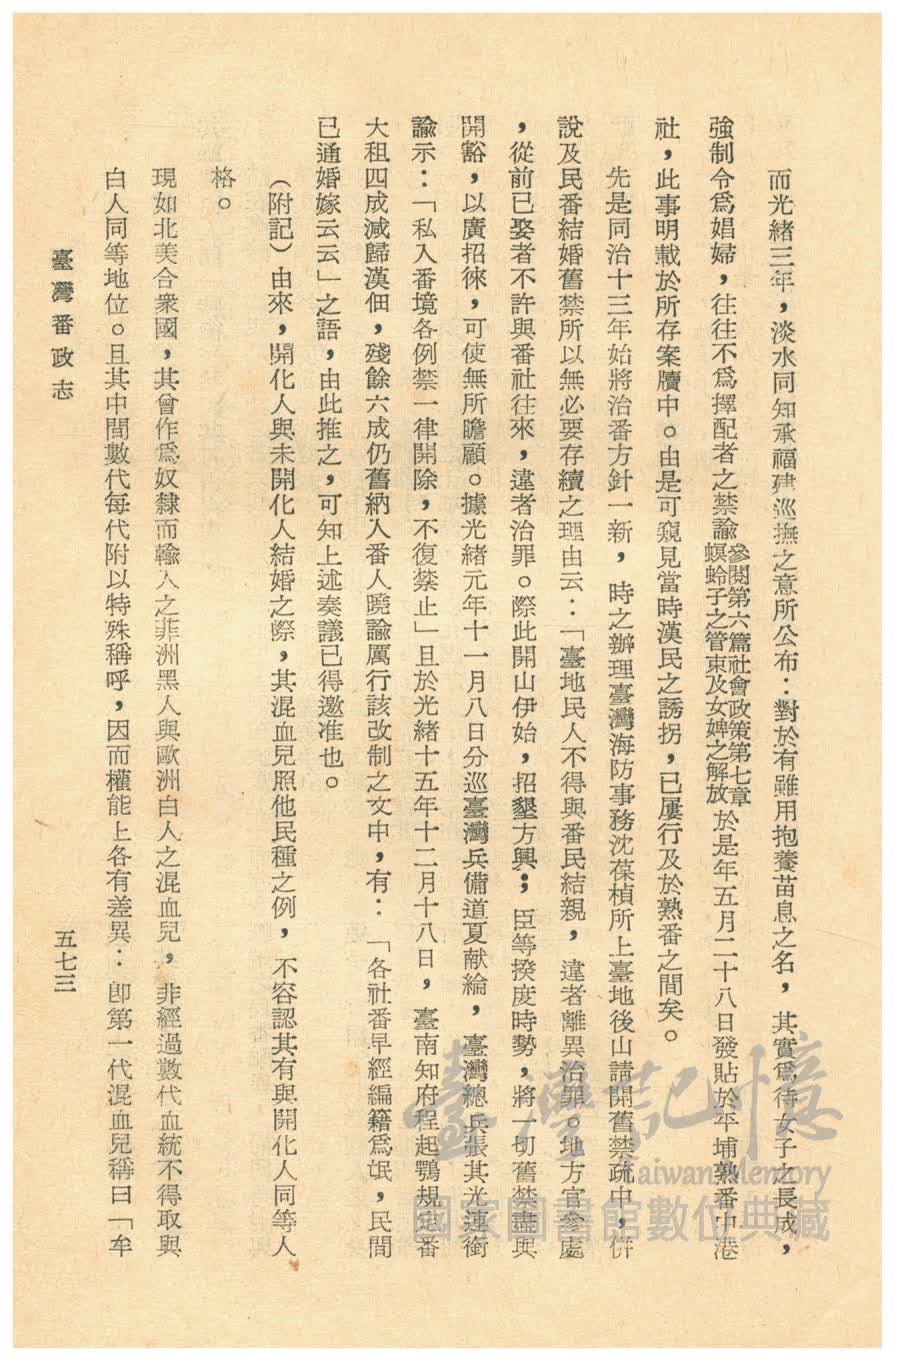 而光緒三年，淡水同知承福建巡撫之意所公布：對於有雖用抱養苗息之名，其實爲待女子之長成，
強制令爲娼婦，往往不爲擇配者之禁諭
參閱第六篇社會政策第七章
螟蛉子之管束及女婢之解放
於是年五月二十八日發貼於平埔熟番中港
社，此事明載於所存案牘中。由是可窺見當時漢民之誘拐，已屢行及於熟番之間矣。
先是同治十三年始將治番方針一新，時之辦理臺灣海防事務沈葆楨所上臺地後山請開舊禁疏中，併
說及民番結婚舊禁所以無必要存續之理由云：「臺地民人不得與番民結親，違者離異治罪。地方官參處
，從前已娶者不許與番社往來，違者治罪。際此開山伊始，招墾方興；臣等揆度時勢，將一切舊禁盡與
開豁，以廣招徠，可使無所瞻顧。據光緒元年十一月八日分巡臺灣兵備道夏献綸，臺灣總兵張其光連銜
諭示：「私入番境各例禁一律開除，不復禁止」且於光緒十五年十二月十八日，臺南知府程起鶚規定番
大租四成減歸漢佃，殘餘六成仍舊納入番人曉諭厲行該改制之文中，有：「各社番早經編籍爲氓，民間
已通婚嫁云云」之語，由此推之，可知上述奏議已得邀准也。
（附記）由來，開化人與未開化人結婚之際，其混血兒照他民種之例，不容認其有與開化人同等人
格。
現如北美合衆國，其曾作爲奴隸而輸入之非洲黑人與歐洲白人之混血兒，非經過數代血統不得取與
白人同等地位。且其中間數代每代附以特殊稱呼，因而權能上各有差異：卽第一代混血兒稱曰「牟
臺灣番政志
五七三
臺灣記憶
Taiwan Memory
國家圖書館數位典藏